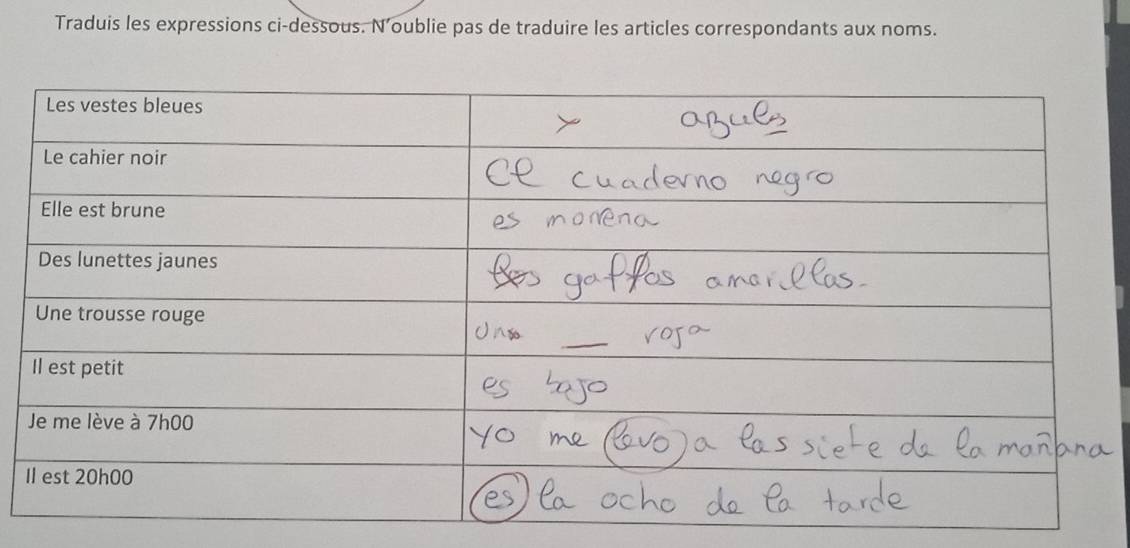 Traduis les expressions ci-dessous. N'oublie pas de traduire les articles correspondants aux noms.
Les vestes bleues azules
Le cahier noir el cuaderno negro
Elle est brune es morena
Des lunettes jaunes gaffas amarillas.
Une trousse rouge una __ roja
Il est petit es bajo
Je me lève à 7h00 yo me levo a las siete de la mañana
Il est 20h00 es la ocho de la tarde